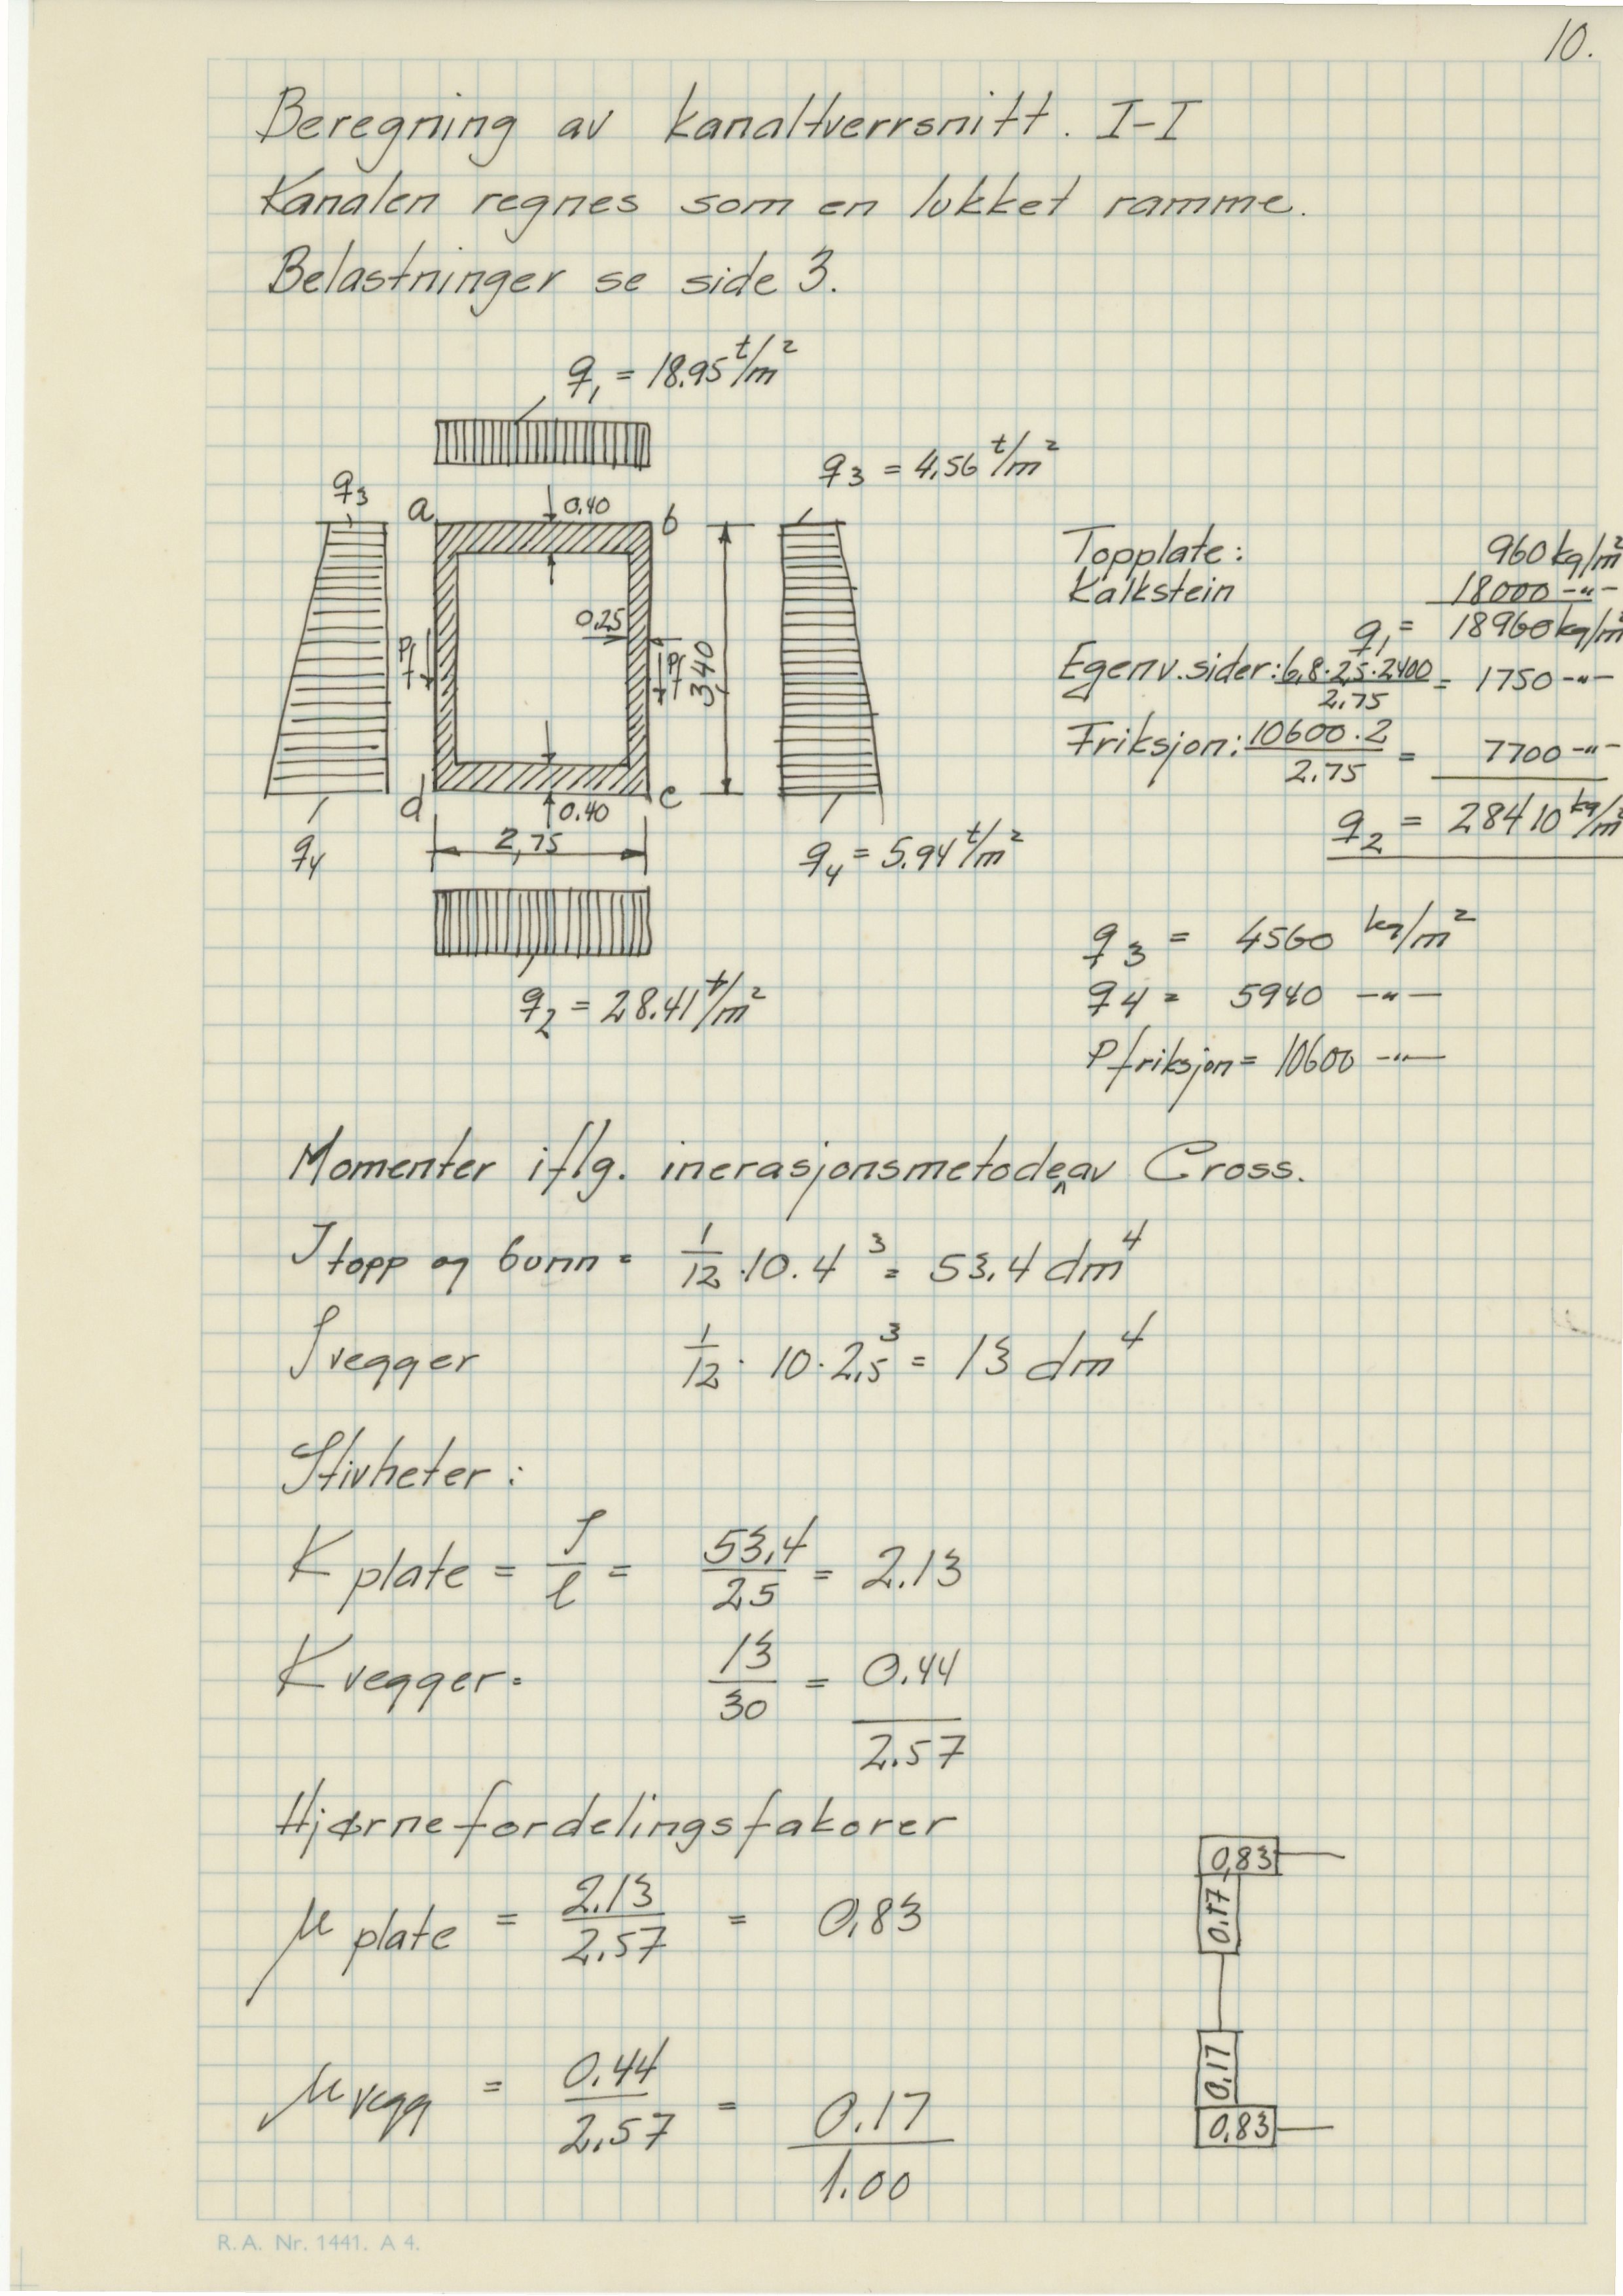 10.
Beregning av kanaltverrsnitt. I-I
Kanalen regnes som en lukket ramme.
Belastninger se side 3.
q1 = 18.95 t/m²
q3 = 4,56 t/m²
q3
a
0,40
b
0,25
Pf
Pf
3,40
d
0.40
c
2,75
q4
q4 = 5.94 t/m²
q2 = 28.41 t/m²
Topplate: 960 kg/m²
Kalkstein 18000 -"-
q1 = 18960 kg/m²
Egenv. sider: 6,8·2,5·2400 / 2,75 = 1750 -"-
Friksjon: 10600·2 / 2.75 = 7700 -"-
q2 = 28410 kg/m²
q3 = 4560 kg/m²
q4 = 5940 -"-
P friksjon = 10600 -"-
Momenter iflg. inerasjonsmetode av Cross.
J topp og bunn = 1/12 · 10 . 4³ = 53,4 dm⁴
J vegger 1/12 · 10 · 2,5³ = 13 dm⁴
Stivheter:
K plate = J/l = 53,4/25 = 2.13
K vegger = 13/30 = 0.44
2.57
Hjørnefordelingsfakorer
μ plate = 2.13/2.57 = 0,83
μ vegg = 0.44/2.57 = 0.17
1.00
0,83
0.17
0.17
0,83
R.A. Nr. 1441. A 4.